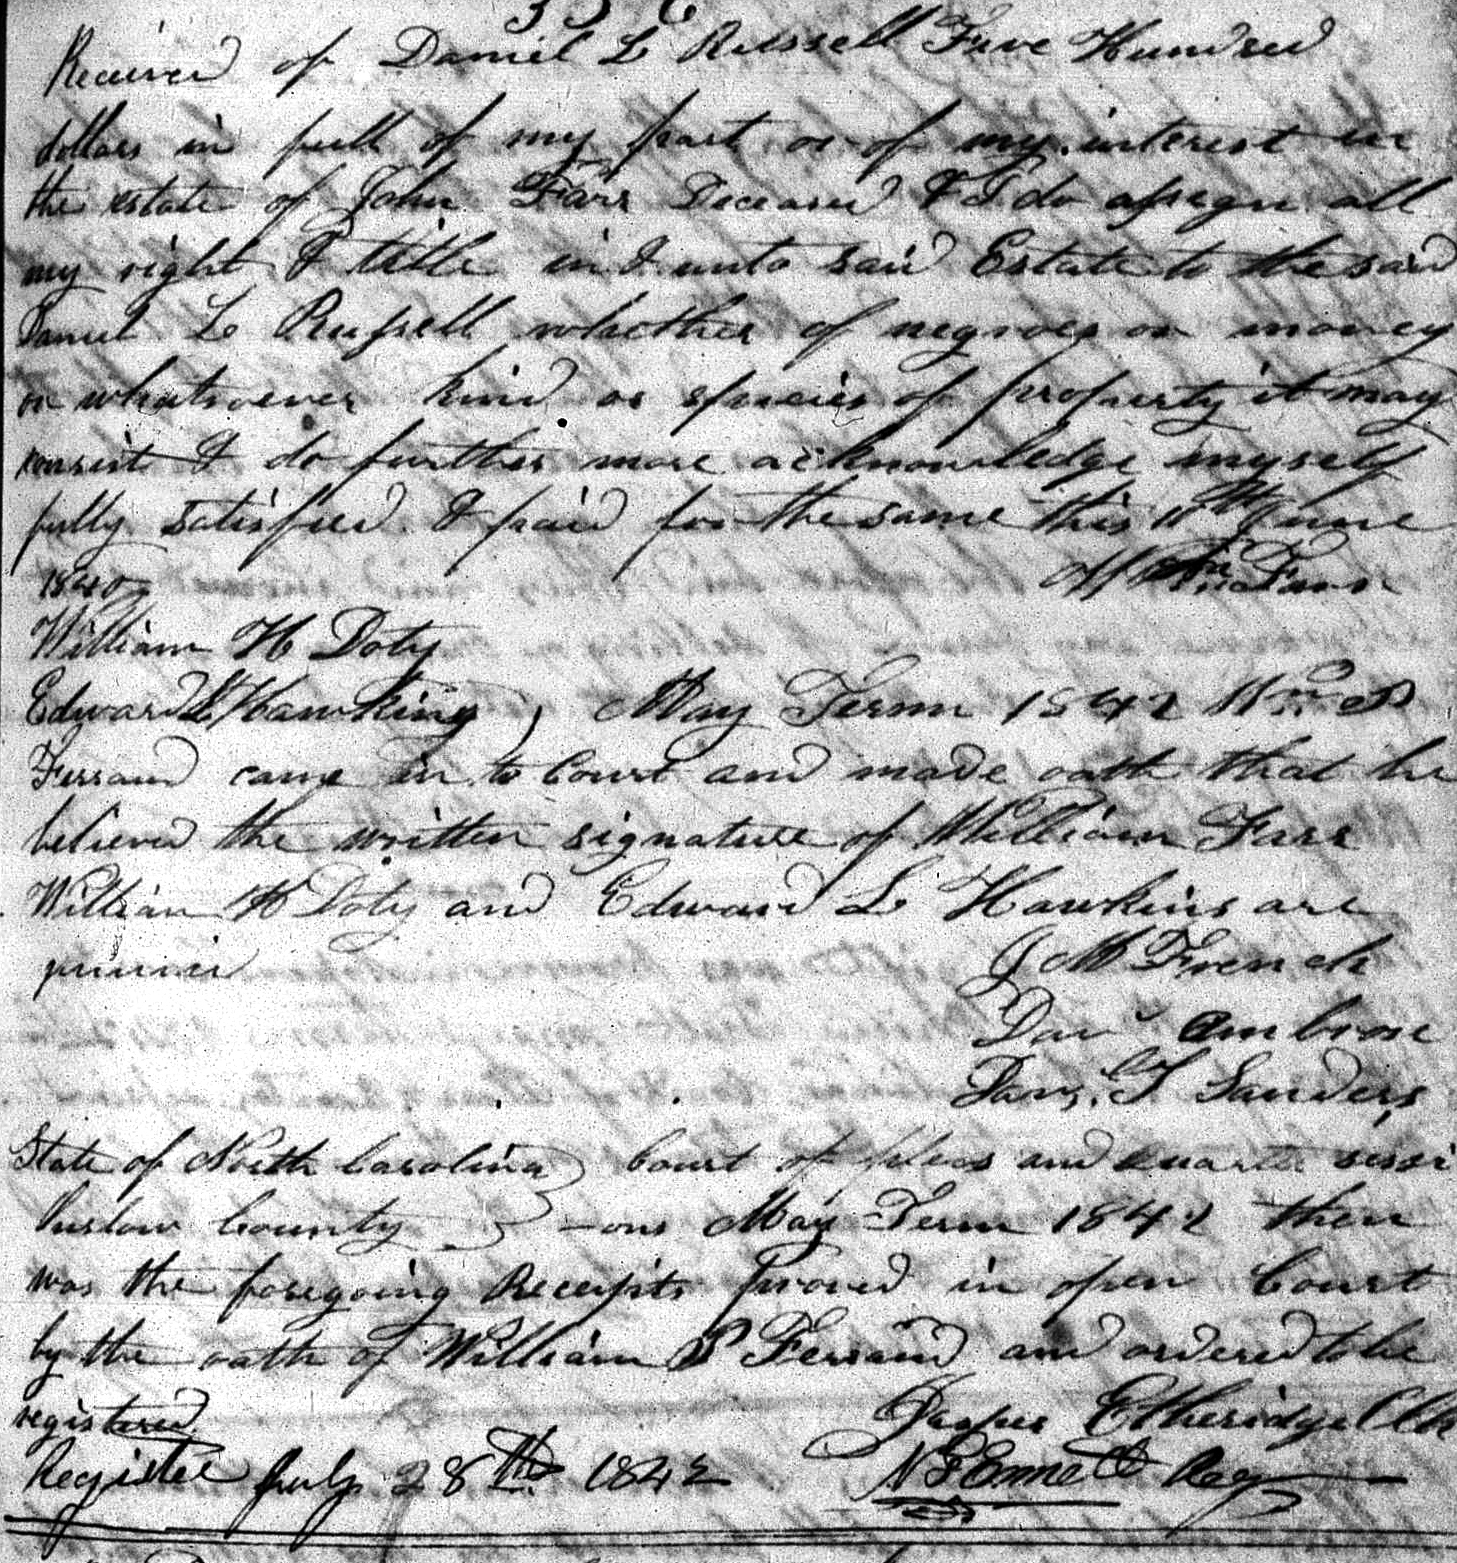 Received of Daniel L Russell Five Hundred
dollars in full of my part or of my interest in
the estate of John Farr Deceased & I do assign all
my right & title in & unto said Estate to the said
Daniel L Russell whether of negroes or money
or whatsoever kind or species of property it may
consist & do further more acknowledge myself
fully satisfied & paid for the same this 11th June
1840 Wm Farr
William H Doty
Edward L Hawkins ) May Term 1842 Wm P
Ferrand came in to Court and made oath that he
believed the written signature of William Farr
William H Doty and Edward L Hawkins are
J M French
Ambrose
T Sanders
State of North Carolina Court of pleas and quarter sessi
Onslow County } -ons May Term 1842 then
was the foregoing Receipts proved in open Court
by the oath of William P Ferrand and ordered to be
registered Jasper Etheridge Clk
Register July 28th 1842 Reg